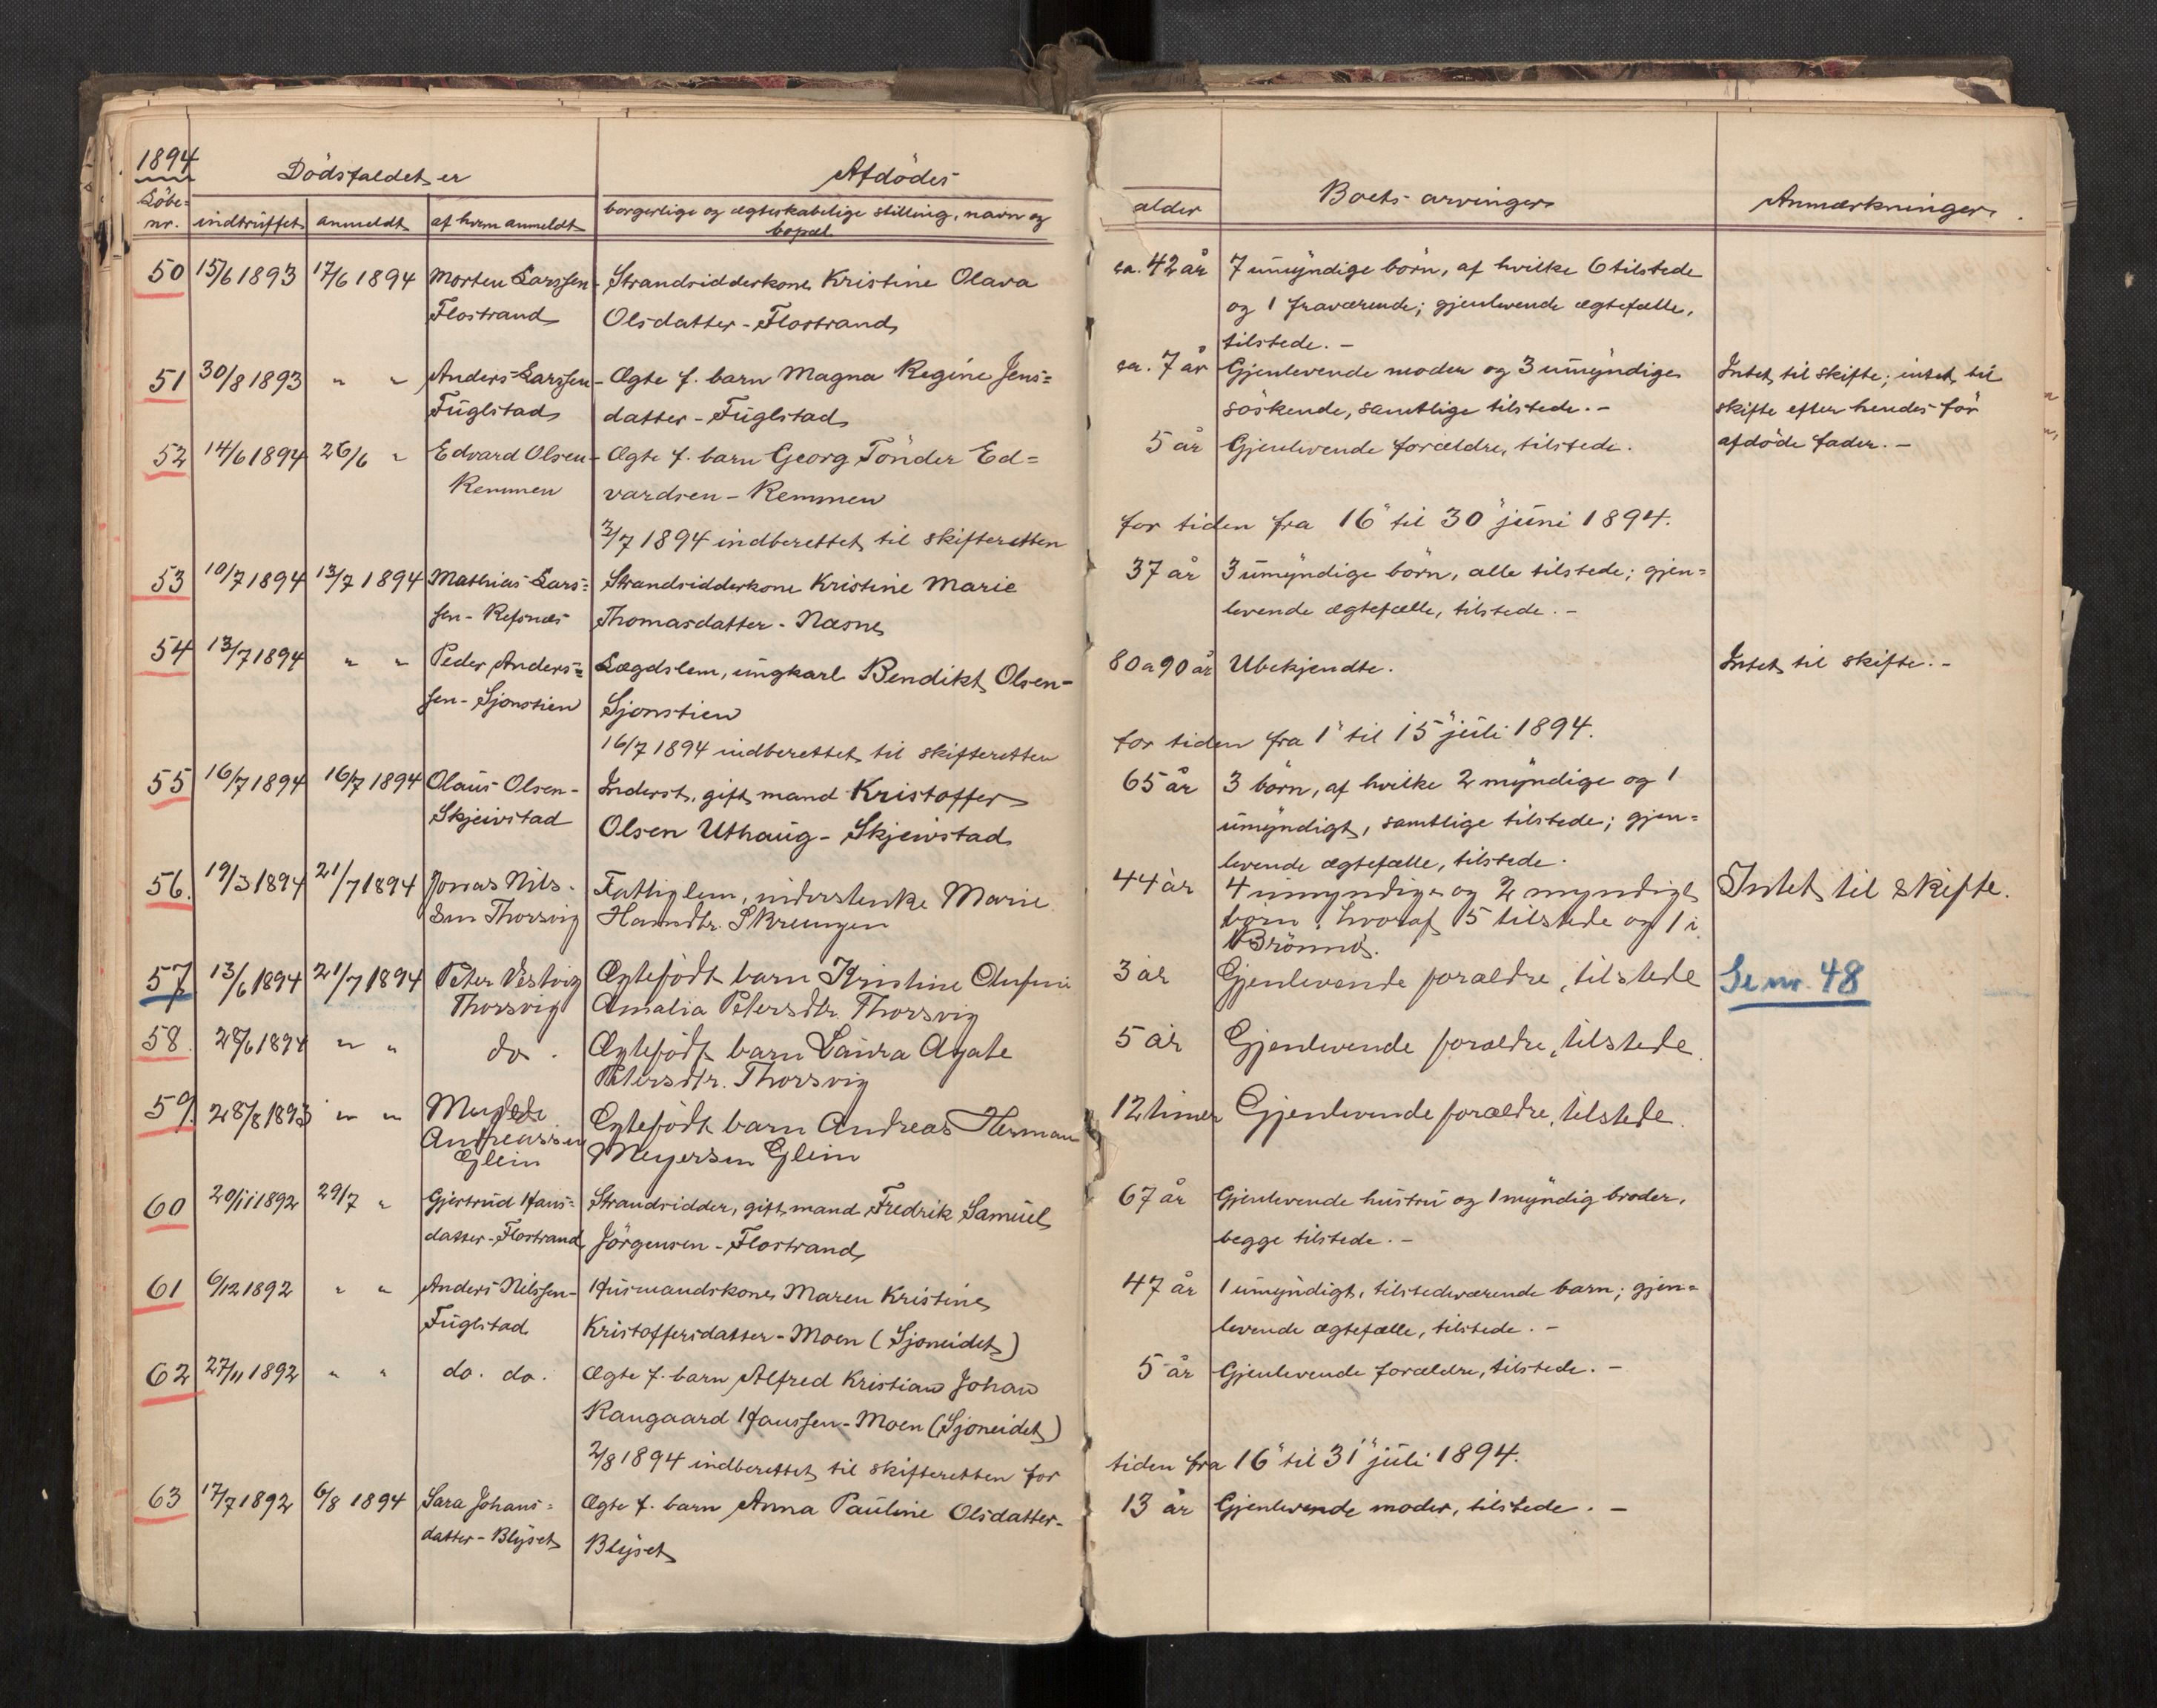 1894
Dödsfaldet er
Afdödes
Löbe-
nr.
indtruffet
anmeldt
af hvem anmeldt
borgerlige og ægteskabelige stilling, navn og
bopæl.
alder
Boets arvinger
Anmærkninger.
50 15/6 1893 17/6 1894 Morten Larssen- Strandsidderkone Kristine Olava ca. 42 år 7 umyndige börn, af hvilke 6 tilstede
Flostrand Olsdatter - Flostrand og 1 fraværende; gjenlevende ægtefælle,
tilstede. -
51 30/8 1893 " " Anders Larssen- Ægte f. barn Magna Regine Jens= ca. 7 år Gjenlevende moder og 3 umyndige Intet til skifte; intet til
Fuglstad datter - Fuglstad söskende, samtlige tilstede. - skifte efter hendes för
52 14/6 1894 26/6 " Edvard Olsen- Ægte f. barn Georg Tönder Ed= 5 år Gjenlevende forældre, tilstede. afdöde fader. -
Remmen vardsen - Remmen
3/7 1894 indberettet til skifteretten for tiden fra 16" til 30" juni 1894.
53 10/7 1894 13/7 1894 Mathias Lars= Strandsidderkone Kristine Marie 37 år 3 umyndige börn, alle tilstede; gjen=
sen - Refsnes Thomasdatter - Næsne levende ægtefælle, tilstede. -
54 13/7 1894 " " Peder Anders= Lægdslem, ungkarl Bendikt Olsen- 80 a 90 år Ubekjendte. Intet til skifte. -
sen - Sjonstien Sjonstien
16/7 1894 indberettet til skifteretten for tiden fra 1" til 15" juli 1894.
55 16/7 1894 16/7 1894 Olaus Olsen- Inderst, gift mand Kristoffer 65 år 3 börn, af hvilke 2 myndige og 1
Skjeivstad Olsen Uthaug - Skjeivstad umyndigt, samtlige tilstede; gjen=
levende ægtefælle, tilstede.
56. 19/3 1894 21/7 1894 Jonas Nils- Fattiglem, Marie 44 år 4 umyndige og 2 myndige Intet til skifte.
sen Thorsvig börn, hvoraf 5 tilstede og 1 i
Brönnö.
57 13/6 1894 21/7 1894 Peter Vestvig Ægtefödt barn Kristine Olufine 3 år Gjenlevende forældre, tilstede Se nr. 48
Thorsvig Amalia Petersdtr. Thorsvig
58. 28/6 1894 " " do. Ægtefödt barn Laura Agate 5 år Gjenlevende forældre, tilstede.
Petersdtr. Thorsvig
59. 28/8 1893 " " Ægtefödt barn Andreas Herman 12 timer Gjenlevende forældre, tilstede.
Andreassen Meyersen Glein
Glein
60 20/11 1892 29/7 " Gjertrud Hans= Strandsidder, gift mand Fredrik Samuel 67 år Gjenlevende hustru og 1 myndig broder,
datter - Flostrand Jörgensen - Flostrand begge tilstede. -
61 6/12 1892 " " Anders Nilssen- Husmandskone Maren Kristine 47 år 1 umyndigt, tilstedeværende barn; gjen=
Fuglstad Kristoffersdatter - Moen (Sjoneidet) levende ægtefælle, tilstede. -
62 27/11 1892 " " do. do. Ægte f. barn Alfred Kristian Johan 5 år Gjenlevende forældre, tilstede. -
Rangaard Hanssen - Moen (Sjoneidet)
2/8 1894 indberettet til skifteretten for tiden fra 16" til 31" juli 1894.
63 17/7 1892 6/8 1894 Sara Johans= Ægte f. barn Anna Pauline Olsdatter- 13 år Gjenlevende moder, tilstede. -
datter - Blyset Blyset